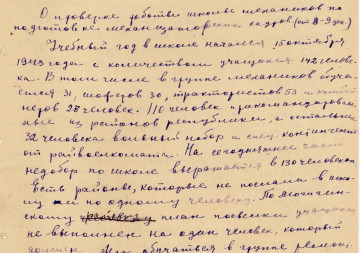 О проверке работы школы механиков по
подготовке механизаторских кадров (от 8-9 дек.)
Учебный год в школе начался 15 октября
1943 года с количеством учащихся 142 челове-
ка. В том числе в группе механиков обуча-
ется 31, шоферов 30, трактористов 53 и комбай
неров 28 человек. 110 человек прикомандирован-
ные из районов республики, а остальные
32 человека вольный набор и спец. контингент
от райвоенкомата. На сегодняшнее число
недобор по школе выражается в 130 человек
Есть районы, которые не послали в шко-
лу ни по одному человеку. По
скому план посылки учащихся
не выполнен на один человек, который
должен обучаться в группе ремонт